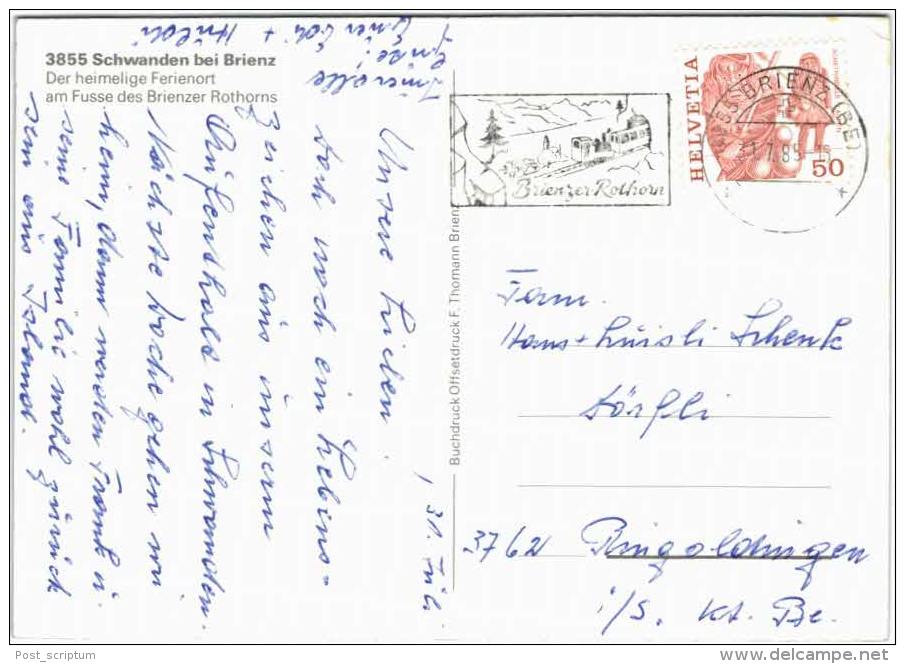 3855 Schwanden bei Brienz
Der heimelige Ferienort
am Fusse des Brienzer Rothorns
31. Juli
Unsere Lieben
Doch noch ein Lebens=
zeichen aus unserm
Aufenthalt in Schwanden.
Nächste Woche gehen wir
heim, dann werden Frank u.
seine Familie wohl zurück
sein aus Island.
Liebe
Grüsse!
+ Hildi
Buchdruck Offsetdruck F. Thomann Brienz
Brienzer-Rothorn
HELVETIA
50
3855 BRIENZ (BE)
31.7.85-16
Fam.
Hans + Lüisli Schenk
Dörfli
3762 Ringoldingen
i/S. Kt. Be.
Post_scriptum
delcampe.net